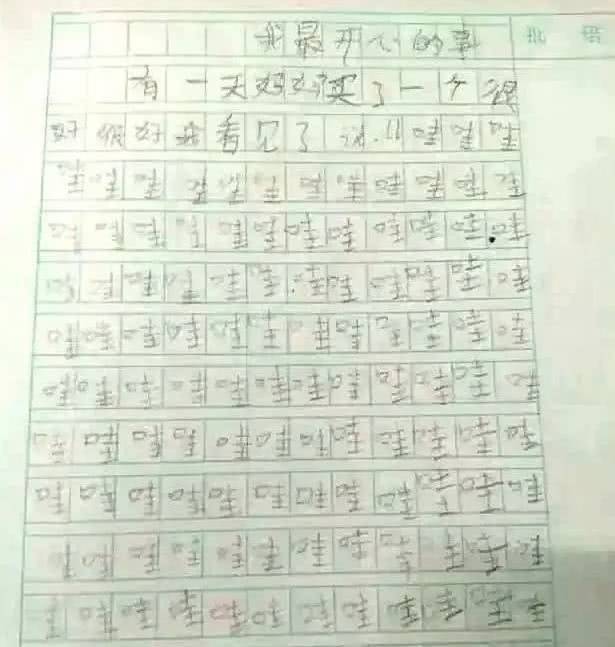 我最开心的事
有一天妈妈买了一个很
好很好我看见了说!!哇哇哇
哇哇哇哇哇哇哇哇哇哇哇哇
哇哇哇哇哇哇哇哇哇哇哇哇
哇哇哇哇哇哇哇哇哇哇哇哇
哇哇哇哇哇哇哇哇哇哇哇哇
哇哇哇哇哇哇哇哇哇哇哇哇
哇哇哇哇哇哇哇哇哇哇哇哇
哇哇哇哇哇哇哇哇哇哇哇哇
哇哇哇哇哇哇哇哇哇哇哇哇
哇哇哇哇哇哇哇哇哇哇哇哇